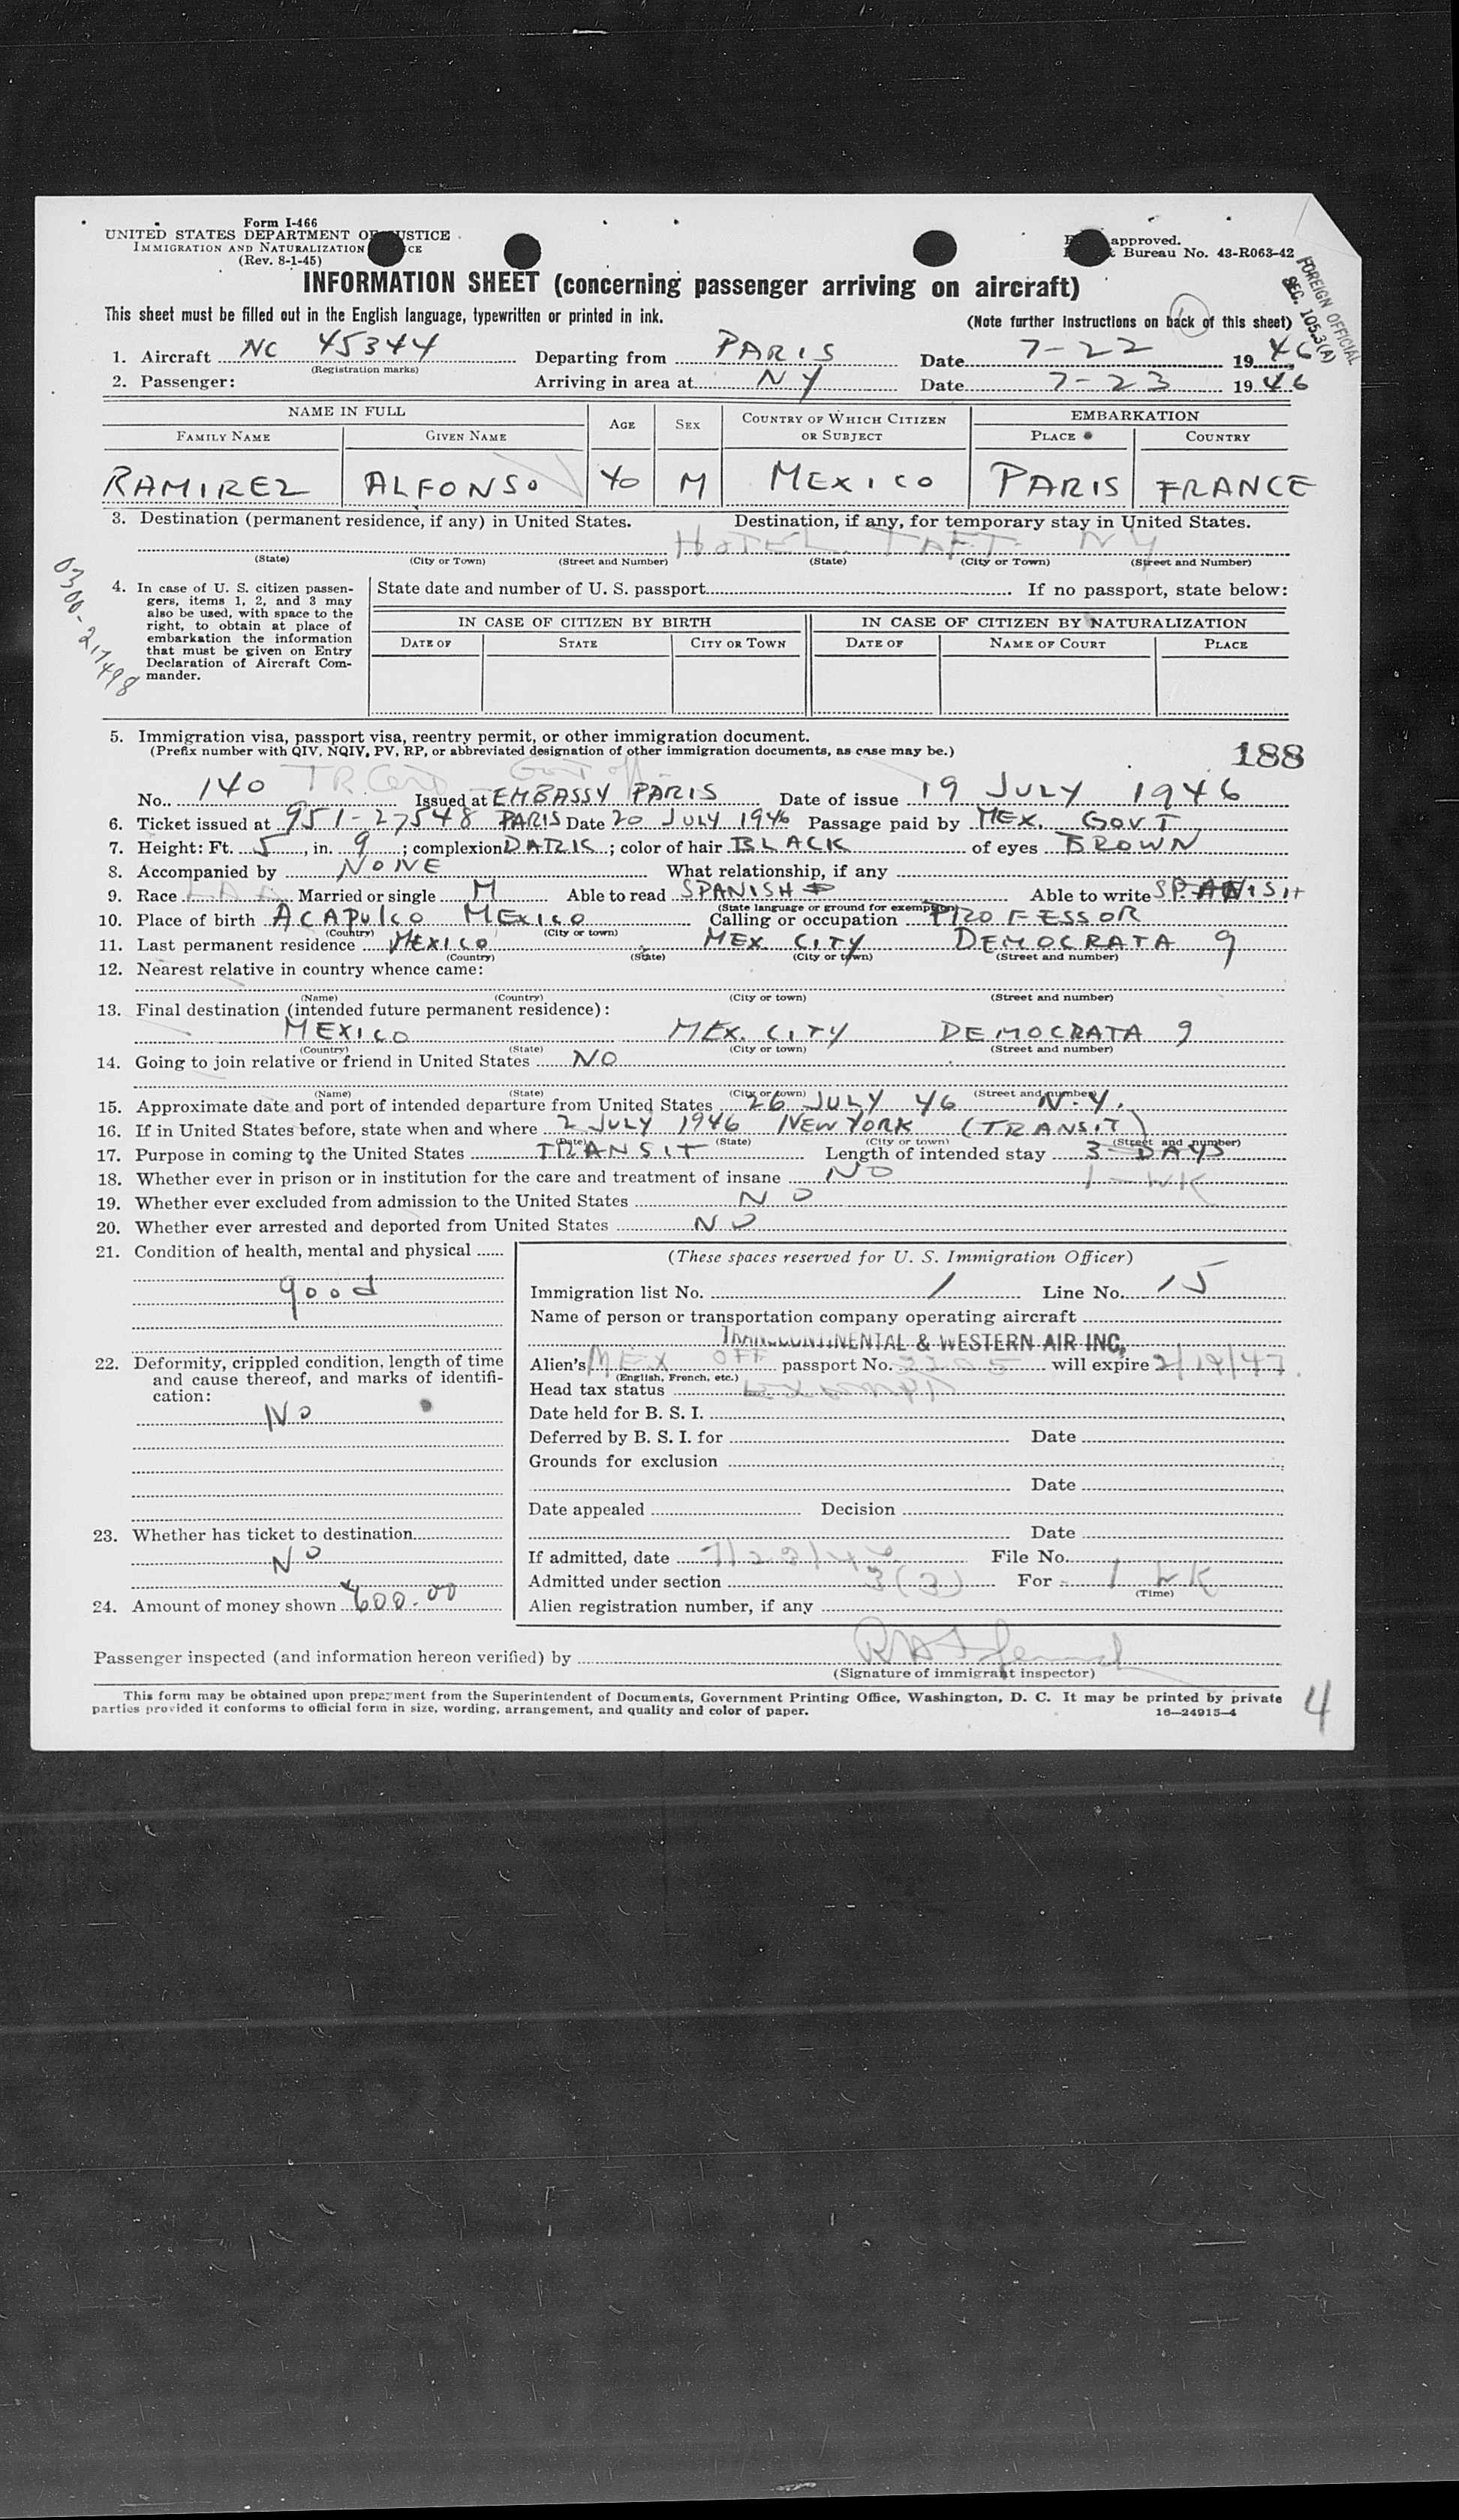 Form I-466
UNITED STATES DEPARTMENT OF JUSTICE
IMMIGRATION AND NATURALIZATION
(Rev. 8-1-45)
approved.
Bureau No. 43-R063-42
FOREIGN OFFICIAL
SEC. 105.3(A)
INFORMATION SHEET (concerning passenger arriving on aircraft)
This sheet must be filled out in the English language, typewritten or printed in ink.
(Note further instructions on back of this sheet)
1. Aircraft NC 45344 Departing from PARIS Date 7-22 1946
(Registration marks)
2. Passenger: Arriving in area at NY Date 7-23 1946
NAME IN FULL AGE SEX COUNTRY OF WHICH CITIZEN OR SUBJECT EMBARKATION
FAMILY NAME GIVEN NAME PLACE COUNTRY
RAMIREZ ALFONSO 40 M MEXICO PARIS FRANCE
3. Destination (permanent residence, if any) in United States. Destination, if any, for temporary stay in United States.
HOTEL TAFT NY
(State) (City or Town) (Street and Number) (State) (City or Town) (Street and Number)
0300-217498
4. In case of U. S. citizen passengers, items 1, 2, and 3 may also be used, with space to the right, to obtain at place of embarkation the information that must be given on Entry Declaration of Aircraft Commander.
State date and number of U. S. passport If no passport, state below:
IN CASE OF CITIZEN BY BIRTH IN CASE OF CITIZEN BY NATURALIZATION
DATE OF STATE CITY OR TOWN DATE OF NAME OF COURT PLACE
5. Immigration visa, passport visa, reentry permit, or other immigration document.
(Prefix number with QIV, NQIV, PV, RP, or abbreviated designation of other immigration documents, as case may be.)
188
No. 140 TR Cert Issued at EMBASSY PARIS Date of issue 19 JULY 1946
6. Ticket issued at 951-27548 PARIS Date 20 JULY 1946 Passage paid by MEX. GOVT
7. Height: Ft. 5, in. 9; complexion DARK; color of hair BLACK of eyes BROWN
8. Accompanied by NONE What relationship, if any
9. Race Married or single M Able to read SPANISH Able to write SPANISH
(State language or ground for exemption)
10. Place of birth ACAPULCO MEXICO Calling or occupation PROFESSOR
(Country) (City or town)
11. Last permanent residence MEXICO MEX CITY DEMOCRATA 9
(Country) (State) (City or town) (Street and number)
12. Nearest relative in country whence came:
(Name) (Country) (City or town) (Street and number)
13. Final destination (intended future permanent residence):
MEXICO MEX. CITY DEMOCRATA 9
(Country) (State) (City or town) (Street and number)
14. Going to join relative or friend in United States NO
(Name) (State) (City or town) (Street and number)
15. Approximate date and port of intended departure from United States 26 JULY 46 N.Y.
16. If in United States before, state when and where 2 JULY 1946 NEW YORK (TRANSIT)
(Date) (State) (City or town) (Street and number)
17. Purpose in coming to the United States TRANSIT Length of intended stay 3 DAYS
18. Whether ever in prison or in institution for the care and treatment of insane NO 1-WK
19. Whether ever excluded from admission to the United States NO
20. Whether ever arrested and deported from United States NO
21. Condition of health, mental and physical
good
22. Deformity, crippled condition, length of time and cause thereof, and marks of identification:
No
23. Whether has ticket to destination
NO
24. Amount of money shown 600.00
(These spaces reserved for U. S. Immigration Officer)
Immigration list No. 1 Line No. 15
Name of person or transportation company operating aircraft
TRANSCONTINENTAL & WESTERN AIR INC.
Alien's MEX OFF passport No. will expire 2/19/47
(English, French, etc.)
Head tax status Exempt
Date held for B. S. I.
Deferred by B. S. I. for Date
Grounds for exclusion
Date
Date appealed Decision
Date
If admitted, date 7/23/46 File No.
Admitted under section 3(3) For 1 WK
(Time)
Alien registration number, if any
Passenger inspected (and information hereon verified) by
(Signature of immigrant inspector)
This form may be obtained upon prepayment from the Superintendent of Documents, Government Printing Office, Washington, D. C. It may be printed by private
parties provided it conforms to official form in size, wording, arrangement, and quality and color of paper.
16—24915-4
4